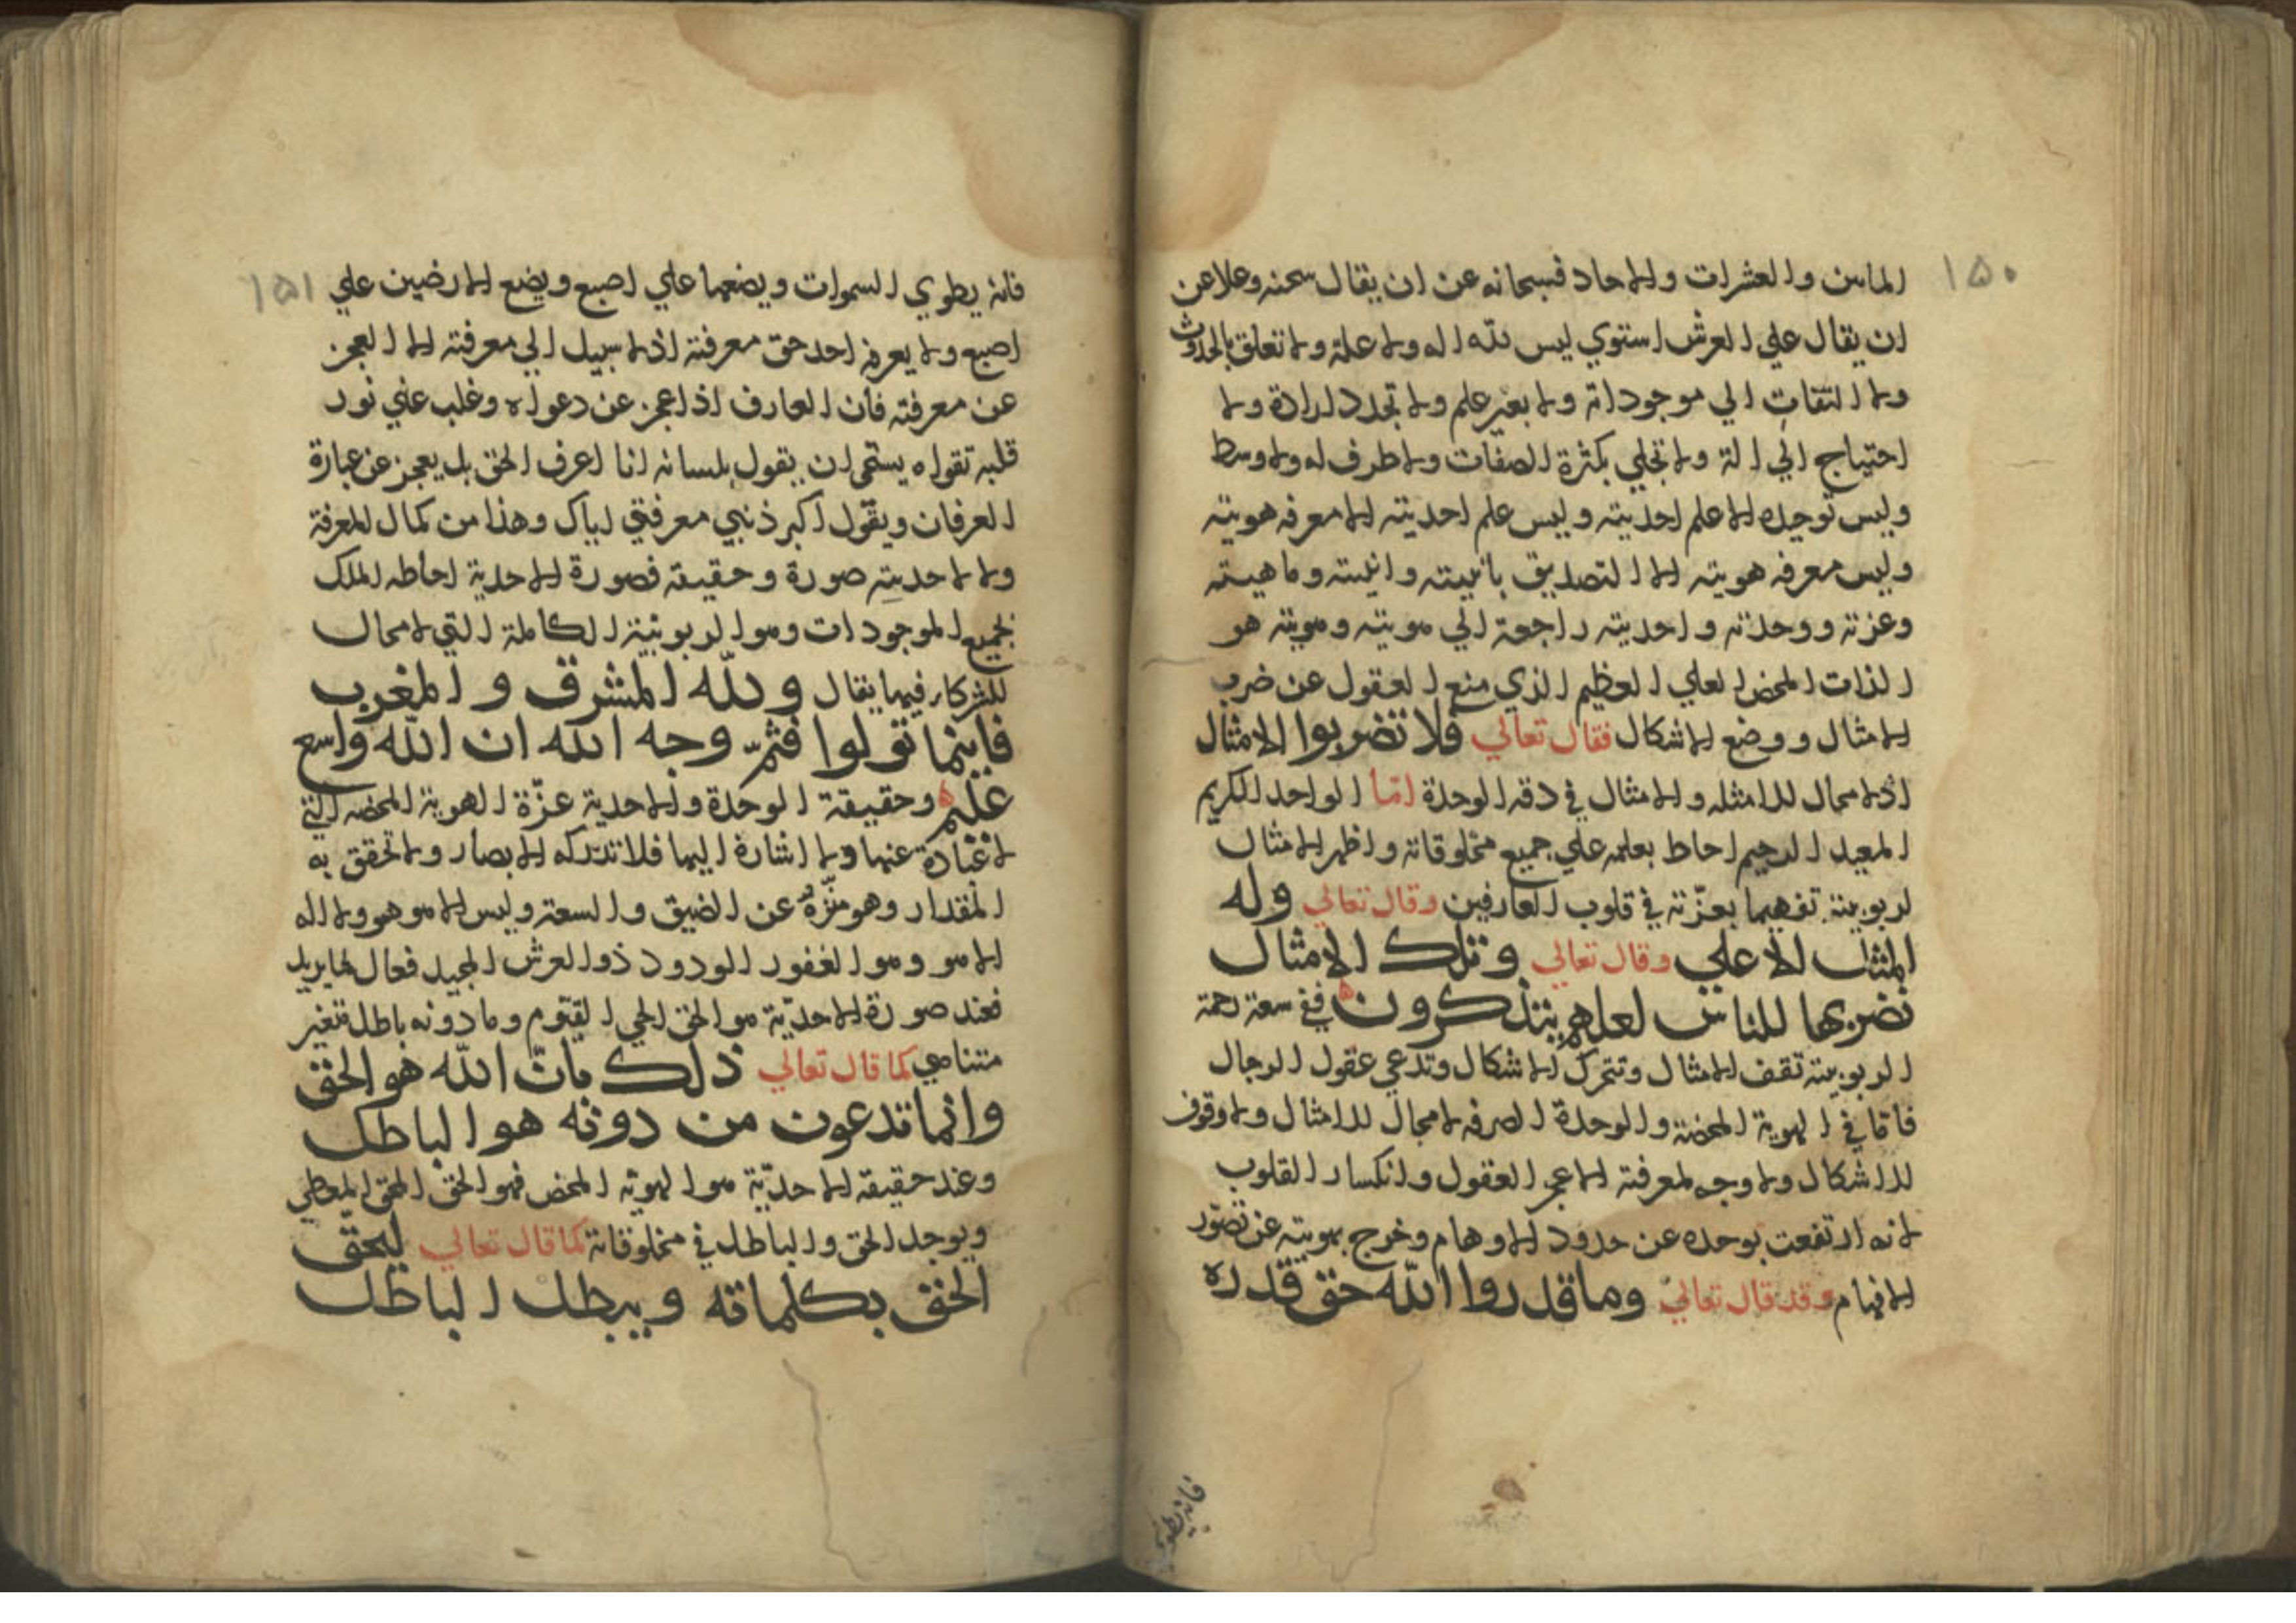 ١٥٠
الماس والعشرات والاحاد فسبحانه عن ان يقال سحنه وعلا عن
ان يقال علي العرش استوي ليس لله اله ولا علة ولا تعلق بالحدوث
ولا التفات الي موجوداته ولا بعير علم ولا تجدد ارادة ولا
احتياج الي الة ولا تجلي بكثرة الصفات ولا طرف له ولا وسط
وليس توحده الا علم احديته وليس علم احديته الا معرفه هويته
وليس معرفه هويته الا التصديق بانيته وانيته وماهيته
وعزته ووحدته واحديته راجعة الي هويته وهويته هو
الذات المحض العلي العظيم الذي منع العقول عن ضرب
الامثال ووضع الاشكال فقال تعالي فلا تضربوا الامثال
اذ لا مجال للامثله والامثال في دقه الوحدة امّا الواحد الكريم
المعيد الرحيم احاط بعلمه علي جميع مخلوقاته واظهر الامثال
لربوبيته تفهيما بعزّته في قلوب العارفين وقال تعالي وله
المثل الاعلي وقال تعالي وتلك الامثال
نضربها للناس لعلهم يتذكرون ففي سعة رحمة
الربوبيته تقف الامثال وتتحرك الاشكال وتدعي عقول الرجال
فاما في الهوية المحضة والوحدة الصرفه لا مجال للامثال ولا وقوف
للاشكال ولا وجه لمعرفته الا عجر العقول وانكسار القلوب
لانه ارتفعت بوحده عن حدود الاوهام وخرج بهويته عن تصّور
الافهام وقد قال تعالي وما قدروا الله حق قدره
فانه يطوي
١٥١
فانه يطوي السموات ويضعها علي اصبع ويضع الارضين علي
اصبع ولا يعرفه احد حق معرفته اذ لا سبيل الي معرفته الا العجز
عن معرفته فان العارف اذا عجز عن دعواه وغلب علي نور
قلبه تقواه يستحي ان يقول بلسانه انا اعرف الحق بل يعجز عن عبارة
العرفان ويقول اكبر ذنبي معرفتي اياك وهذا من كمال المعرفة
ولاحديته صورة وحقيقه فصورة الاحدية احاطه الملك
بجميع الموجودات وهو الربوبية الكاملة التي لا مجال
للشركاء فيها يقال ولله المشرق والمغرب
فاينما تولوا فثمّ وجه الله ان الله واسع
عليم وحقيقة الوحدة والاحدية عزّة الهوية المحضه التي
لا عبارة عنها ولا اشارة اليها فلا تدركه الابصار ولا تحقق به
المقدار وهو منزّه عن الضيق والسعة وليس الا هو هو ولا اله
الا هو وهو الغفور الودود ذو العرش المجيد فعال لما يريد
فعند صورة الاحديّة هو الحق الحي القيّوم وما دونه باطل متغير
متناهي كما قال تعالي ذلك بانّ الله هو الحق
وانما تدعون من دونه هو الباطل
وعند حقيقه الاحديّة هو الهويّه المحض فهو الحق المحق المعطي
ويوجد الحق والباطل في مخلوقاته كما قال تعالي ليحقّ
الحق بكلماته ويبطل الباطل